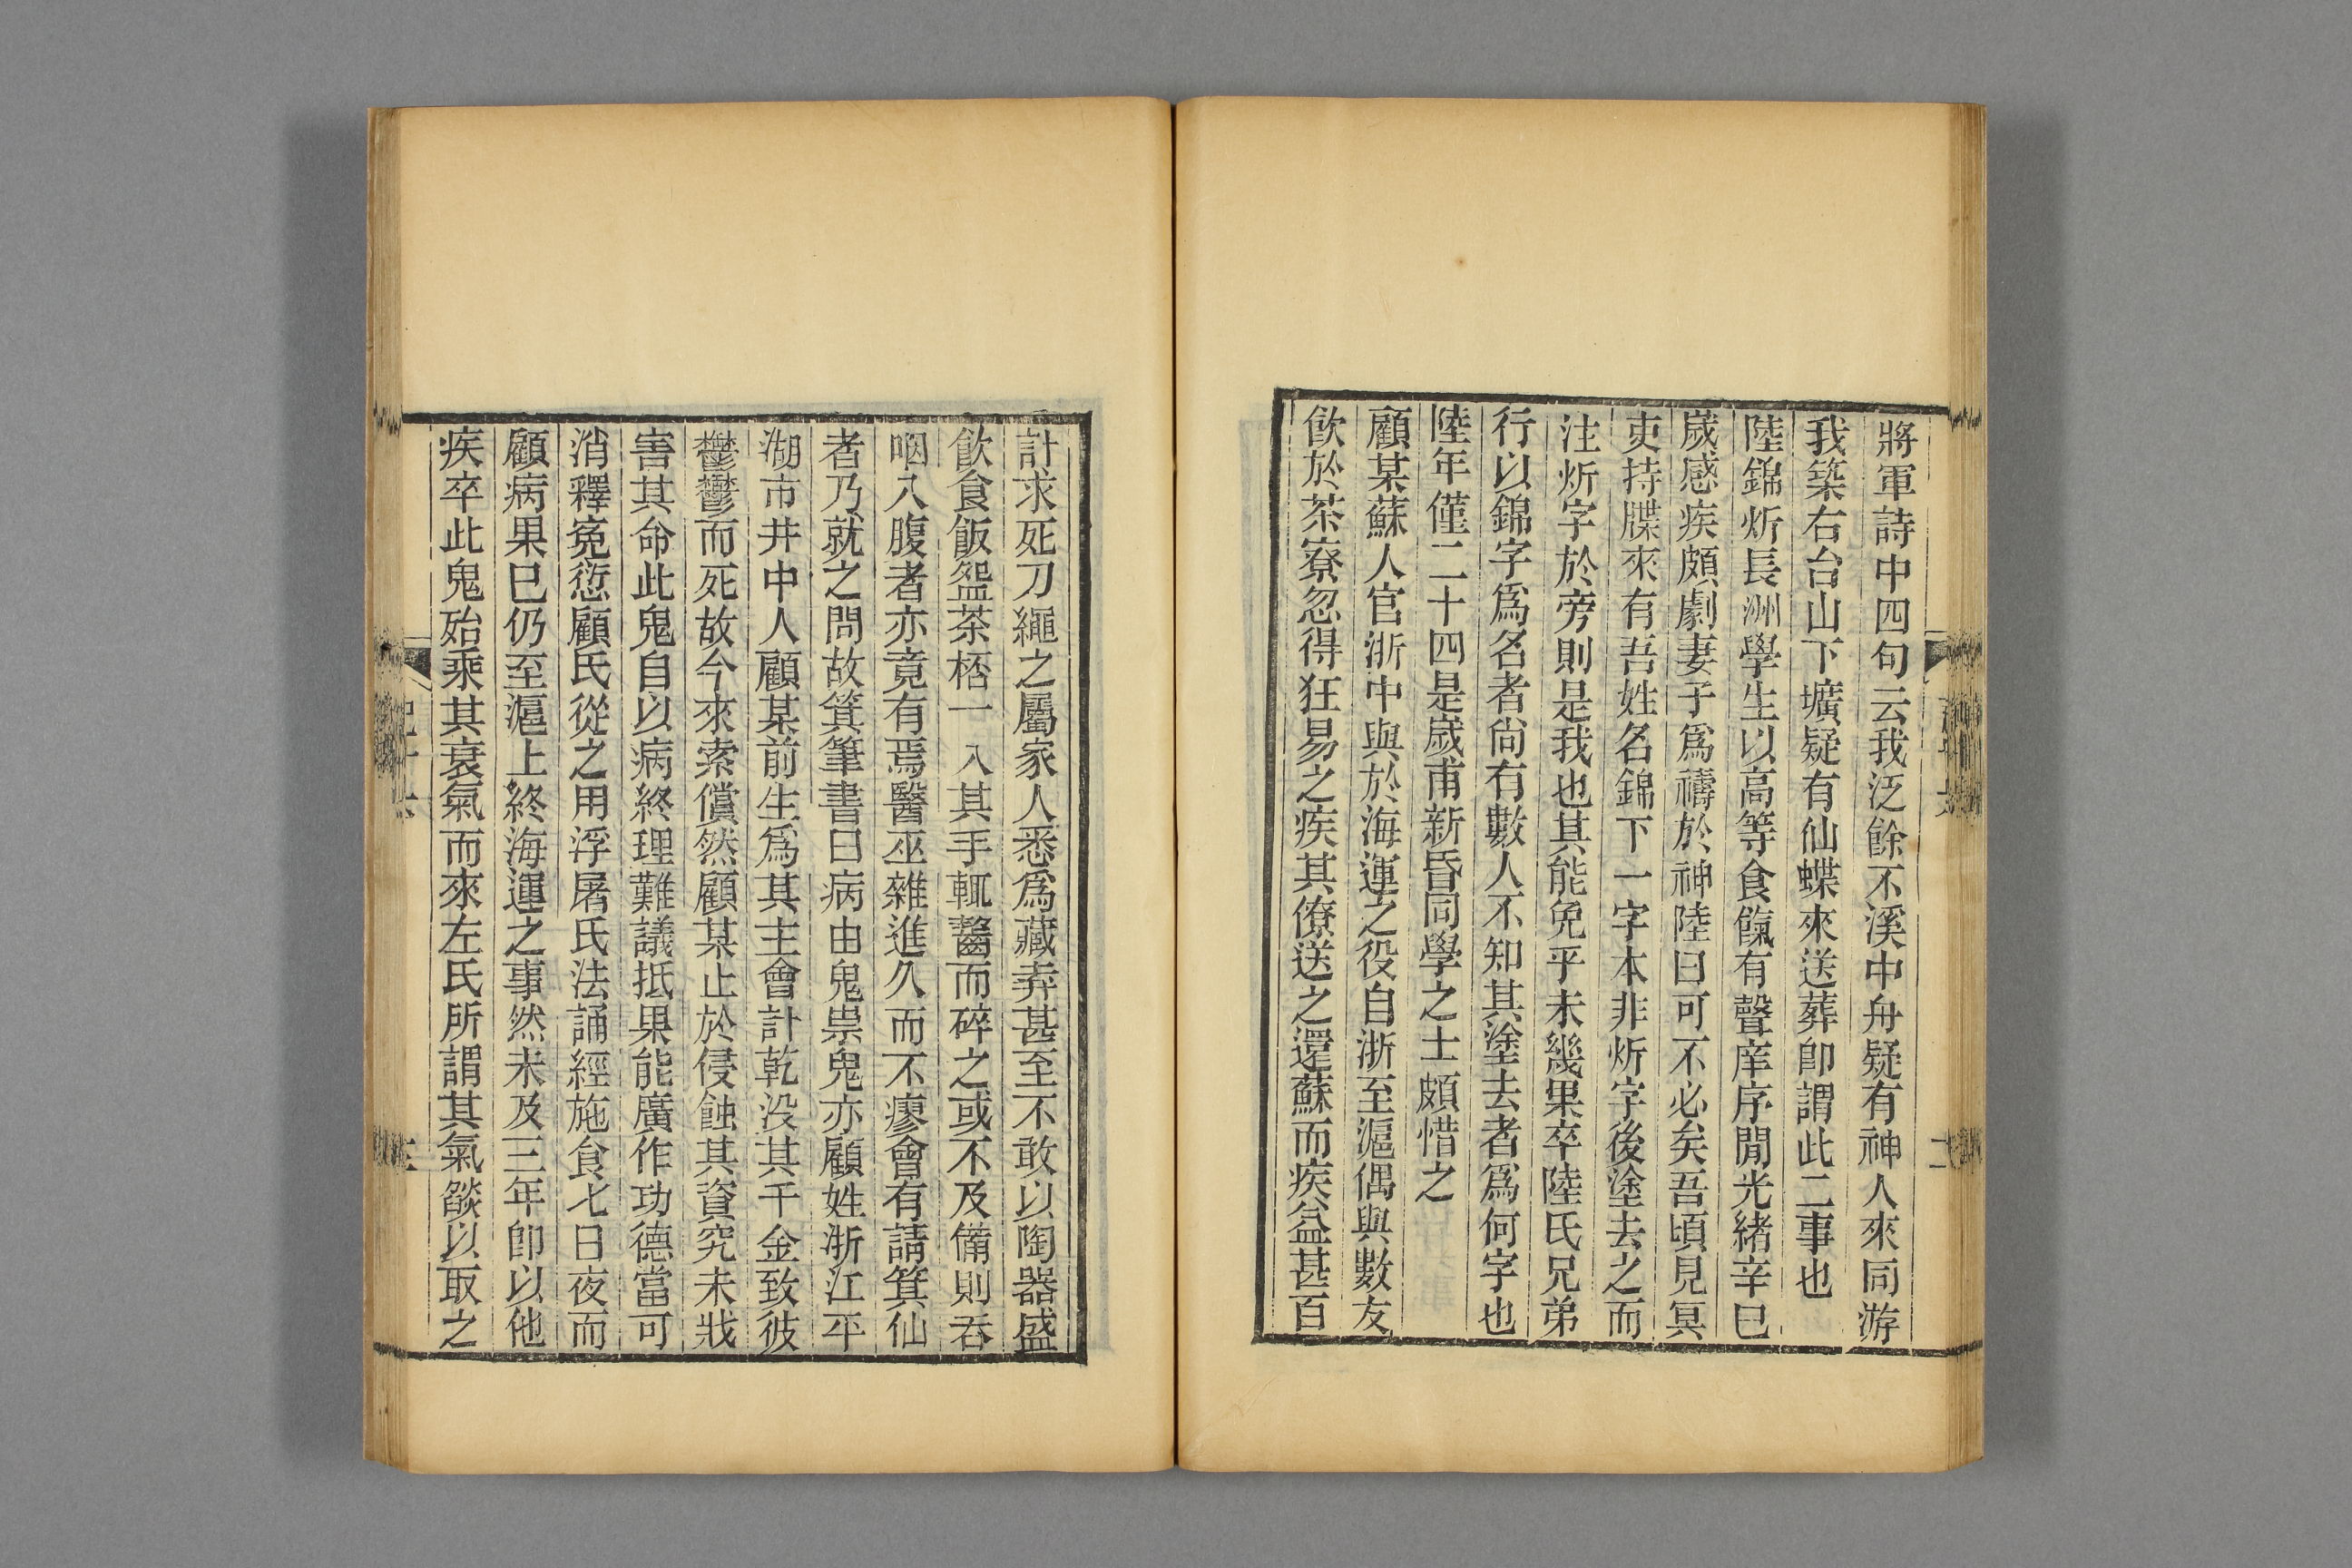 將軍詩中四句云我泛餘不溪中舟疑有神人來同游
我築右台山下壙疑有仙蝶來送葬卽謂此二事也
陸錦炘長洲學生以高等食餼有聲庠序閒光緒辛巳
歲感疾頗劇妻子爲禱於神陸曰可不必矣吾頃見冥
吏持牒來有吾姓名錦下一字本非炘字後塗去之而
注炘字於旁則是我也其能免乎未幾果卒陸氏兄弟
行以錦字爲名者尙有數人不知其塗去者爲何字也
陸年僅二十四是歲甫新昏同學之士頗惜之
顧某蘇人官浙中與於海運之役自浙至滬偶與數友
飮於茶寮忽得狂易之疾其僚送之還蘇而疾益甚百
計求死刀繩之屬家人悉爲藏弆甚至不敢以陶器盛
飮食飯盌茶桮一入其手輒齧而碎之或不及備則吞
咽入腹者亦竟有焉醫巫雜進久而不瘳會有請箕仙
者乃就之問故箕筆書曰病由鬼祟鬼亦顧姓浙江平
湖市井中人顧某前生爲其主會計乾没其千金致彼
鬱鬱而死故今來索償然顧某止於侵蝕其資究未戕
害其命此鬼自以病終理難議抵果能廣作功德當可
消釋寃愆顧氏從之用浮屠氏法誦經施食七日夜而
顧病果已仍至滬上終海運之事然未及三年卽以他
疾卒此鬼殆乘其衰氣而來左氏所謂其氣燄以取之